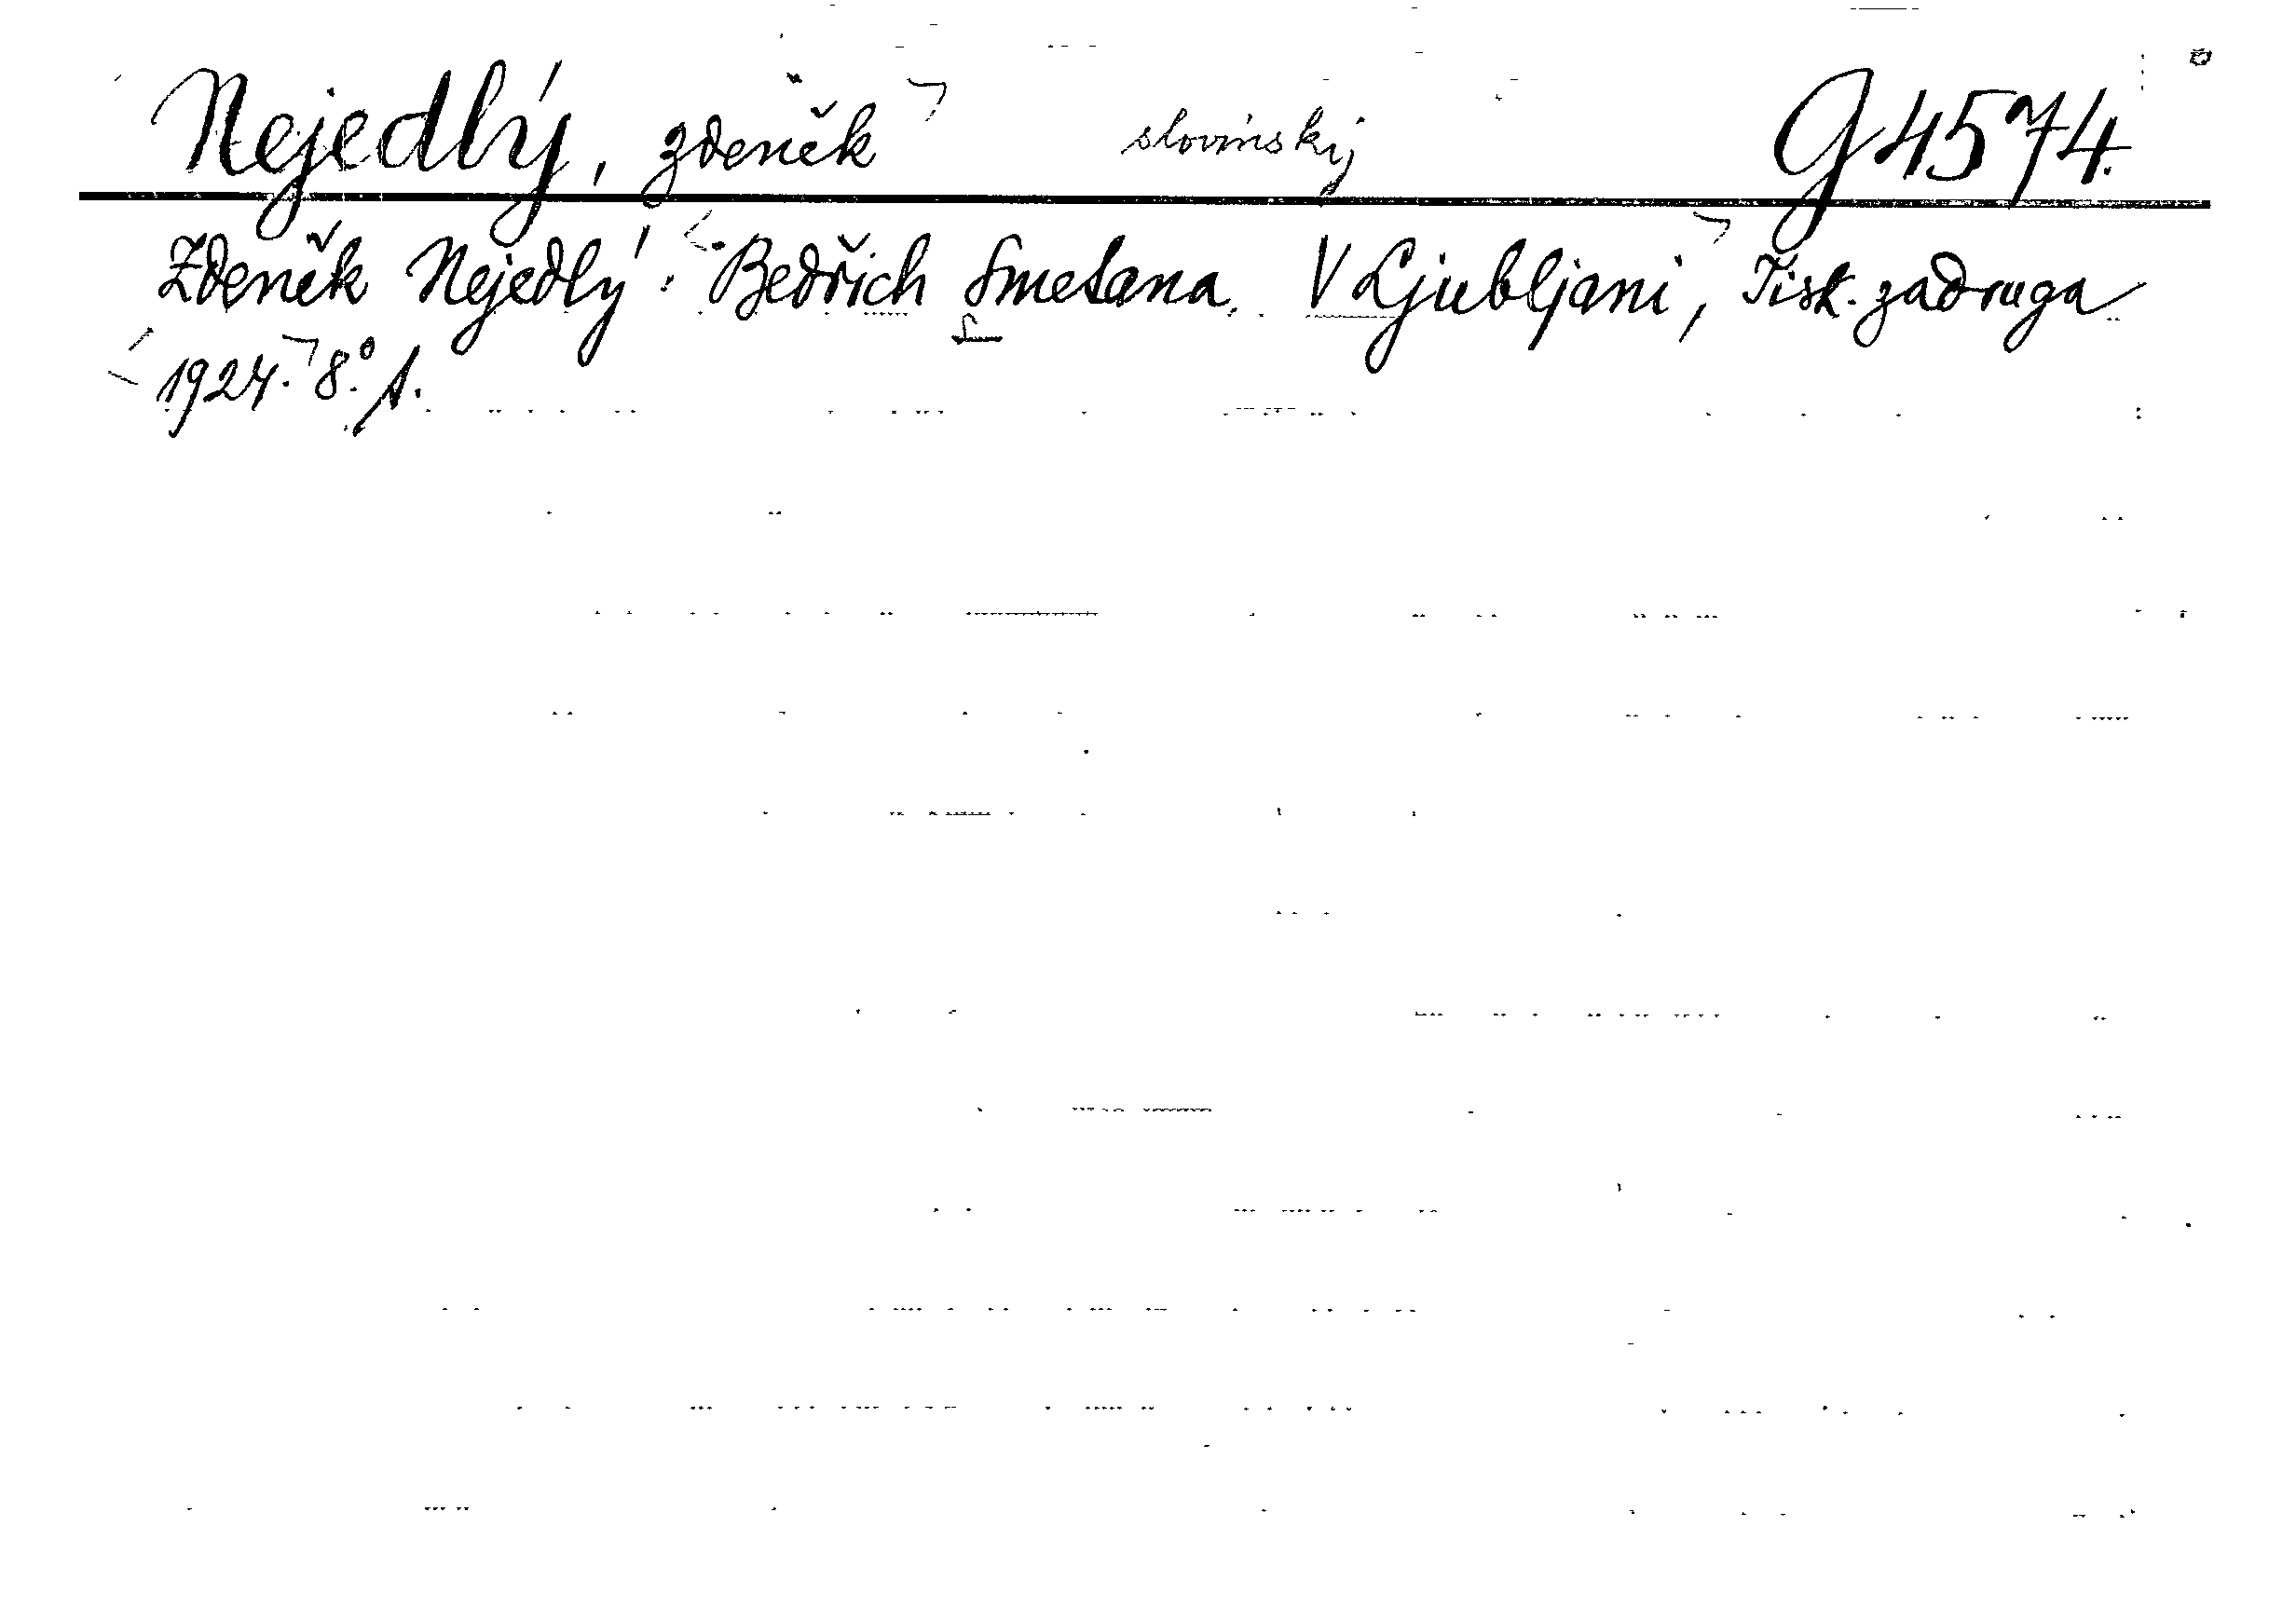 Nejedlý, Zdeněk slovinský G 4574.
Zdeněk Nejedlý: Bedřich Smetana. V Ljubljani, Tisk. zadruga
1924. 8° 1.